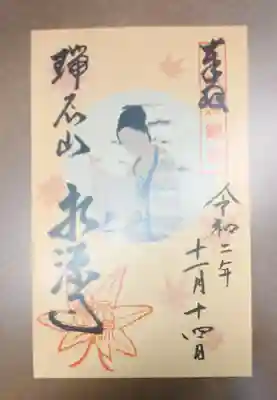 奉拝
令和二年
十一月十四日
瑞石山 永源寺